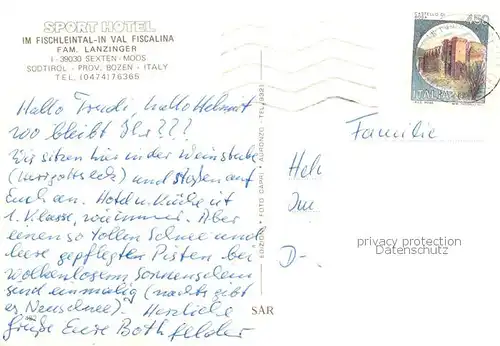 SPORT HOTEL
IM FISCHLEINTAL-IN VAL FISCALINA
FAM. LANZINGER
I - 39030 SEXTEN - MOOS
SÜDTIROL - PROV. BOZEN - ITALY
TEL. (0474) 76365
Hallo Trudi, hallo Helmut
wo bleibt Ihr???
Wir sitzen hier in der Weinstube
und stoßen auf
Euch an. Hotel u. Küche ist
1. Klasse, wie immer. Aber
einen so tollen Schnee und
leere gepflegten Pisten bei
wolkenlosem Sonnenschein
sind einmalig (nachts gibt
es Neuschnee). Herzliche
Grüße Eure Bothfelder
EDIZIONI - FOTO GAPRI - AURONZO - TEL. 9321
SAR
450
ITALIA
Familie
Hel
Im
D-
privacy protection
Datenschutz